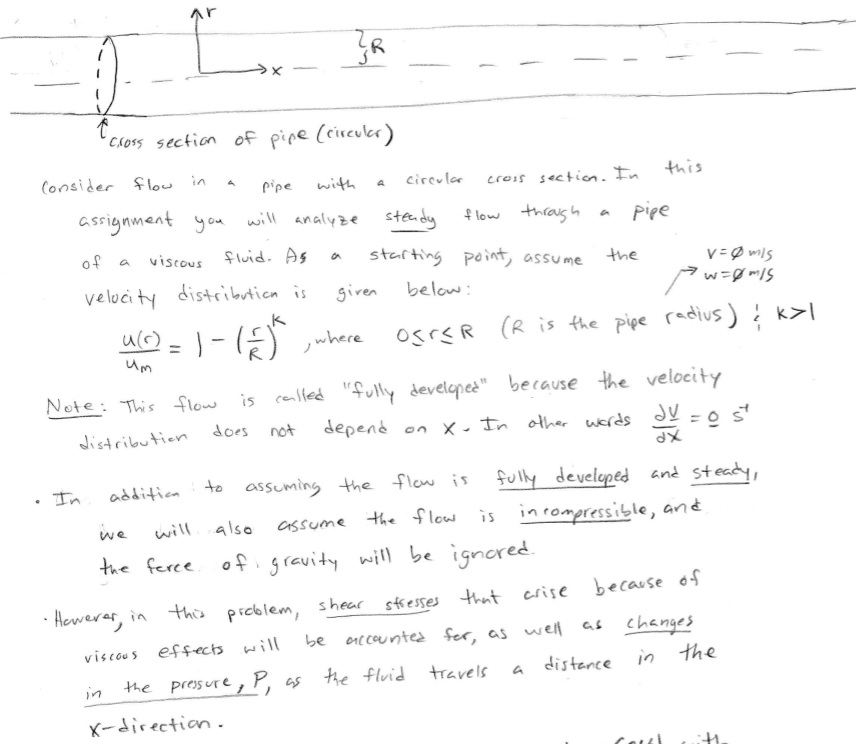 r
R
x
cross section of pipe (circular)
Consider flow in a pipe with a circular cross section. In this
assignment you will analyze steady flow through a pipe
of a viscous fluid. As a starting point, assume the
v=Ø m/s
w=Ø m/s
velocity distribution is given below:
u(r)/u_m = 1-(r/R)^k, where 0≤r≤R (R is the pipe radius) & k>1
Note: This flow is called "fully developed" because the velocity
distribution does not depend on x. In other words ∂V/∂x = 0 s⁻¹
• In addition to assuming the flow is fully developed and steady,
we will also assume the flow is incompressible, and
the force of gravity will be ignored.
• However, in this problem, shear stresses that arise because of
viscous effects will be accounted for, as well as changes
in the pressure, P, as the fluid travels a distance in the
x-direction.